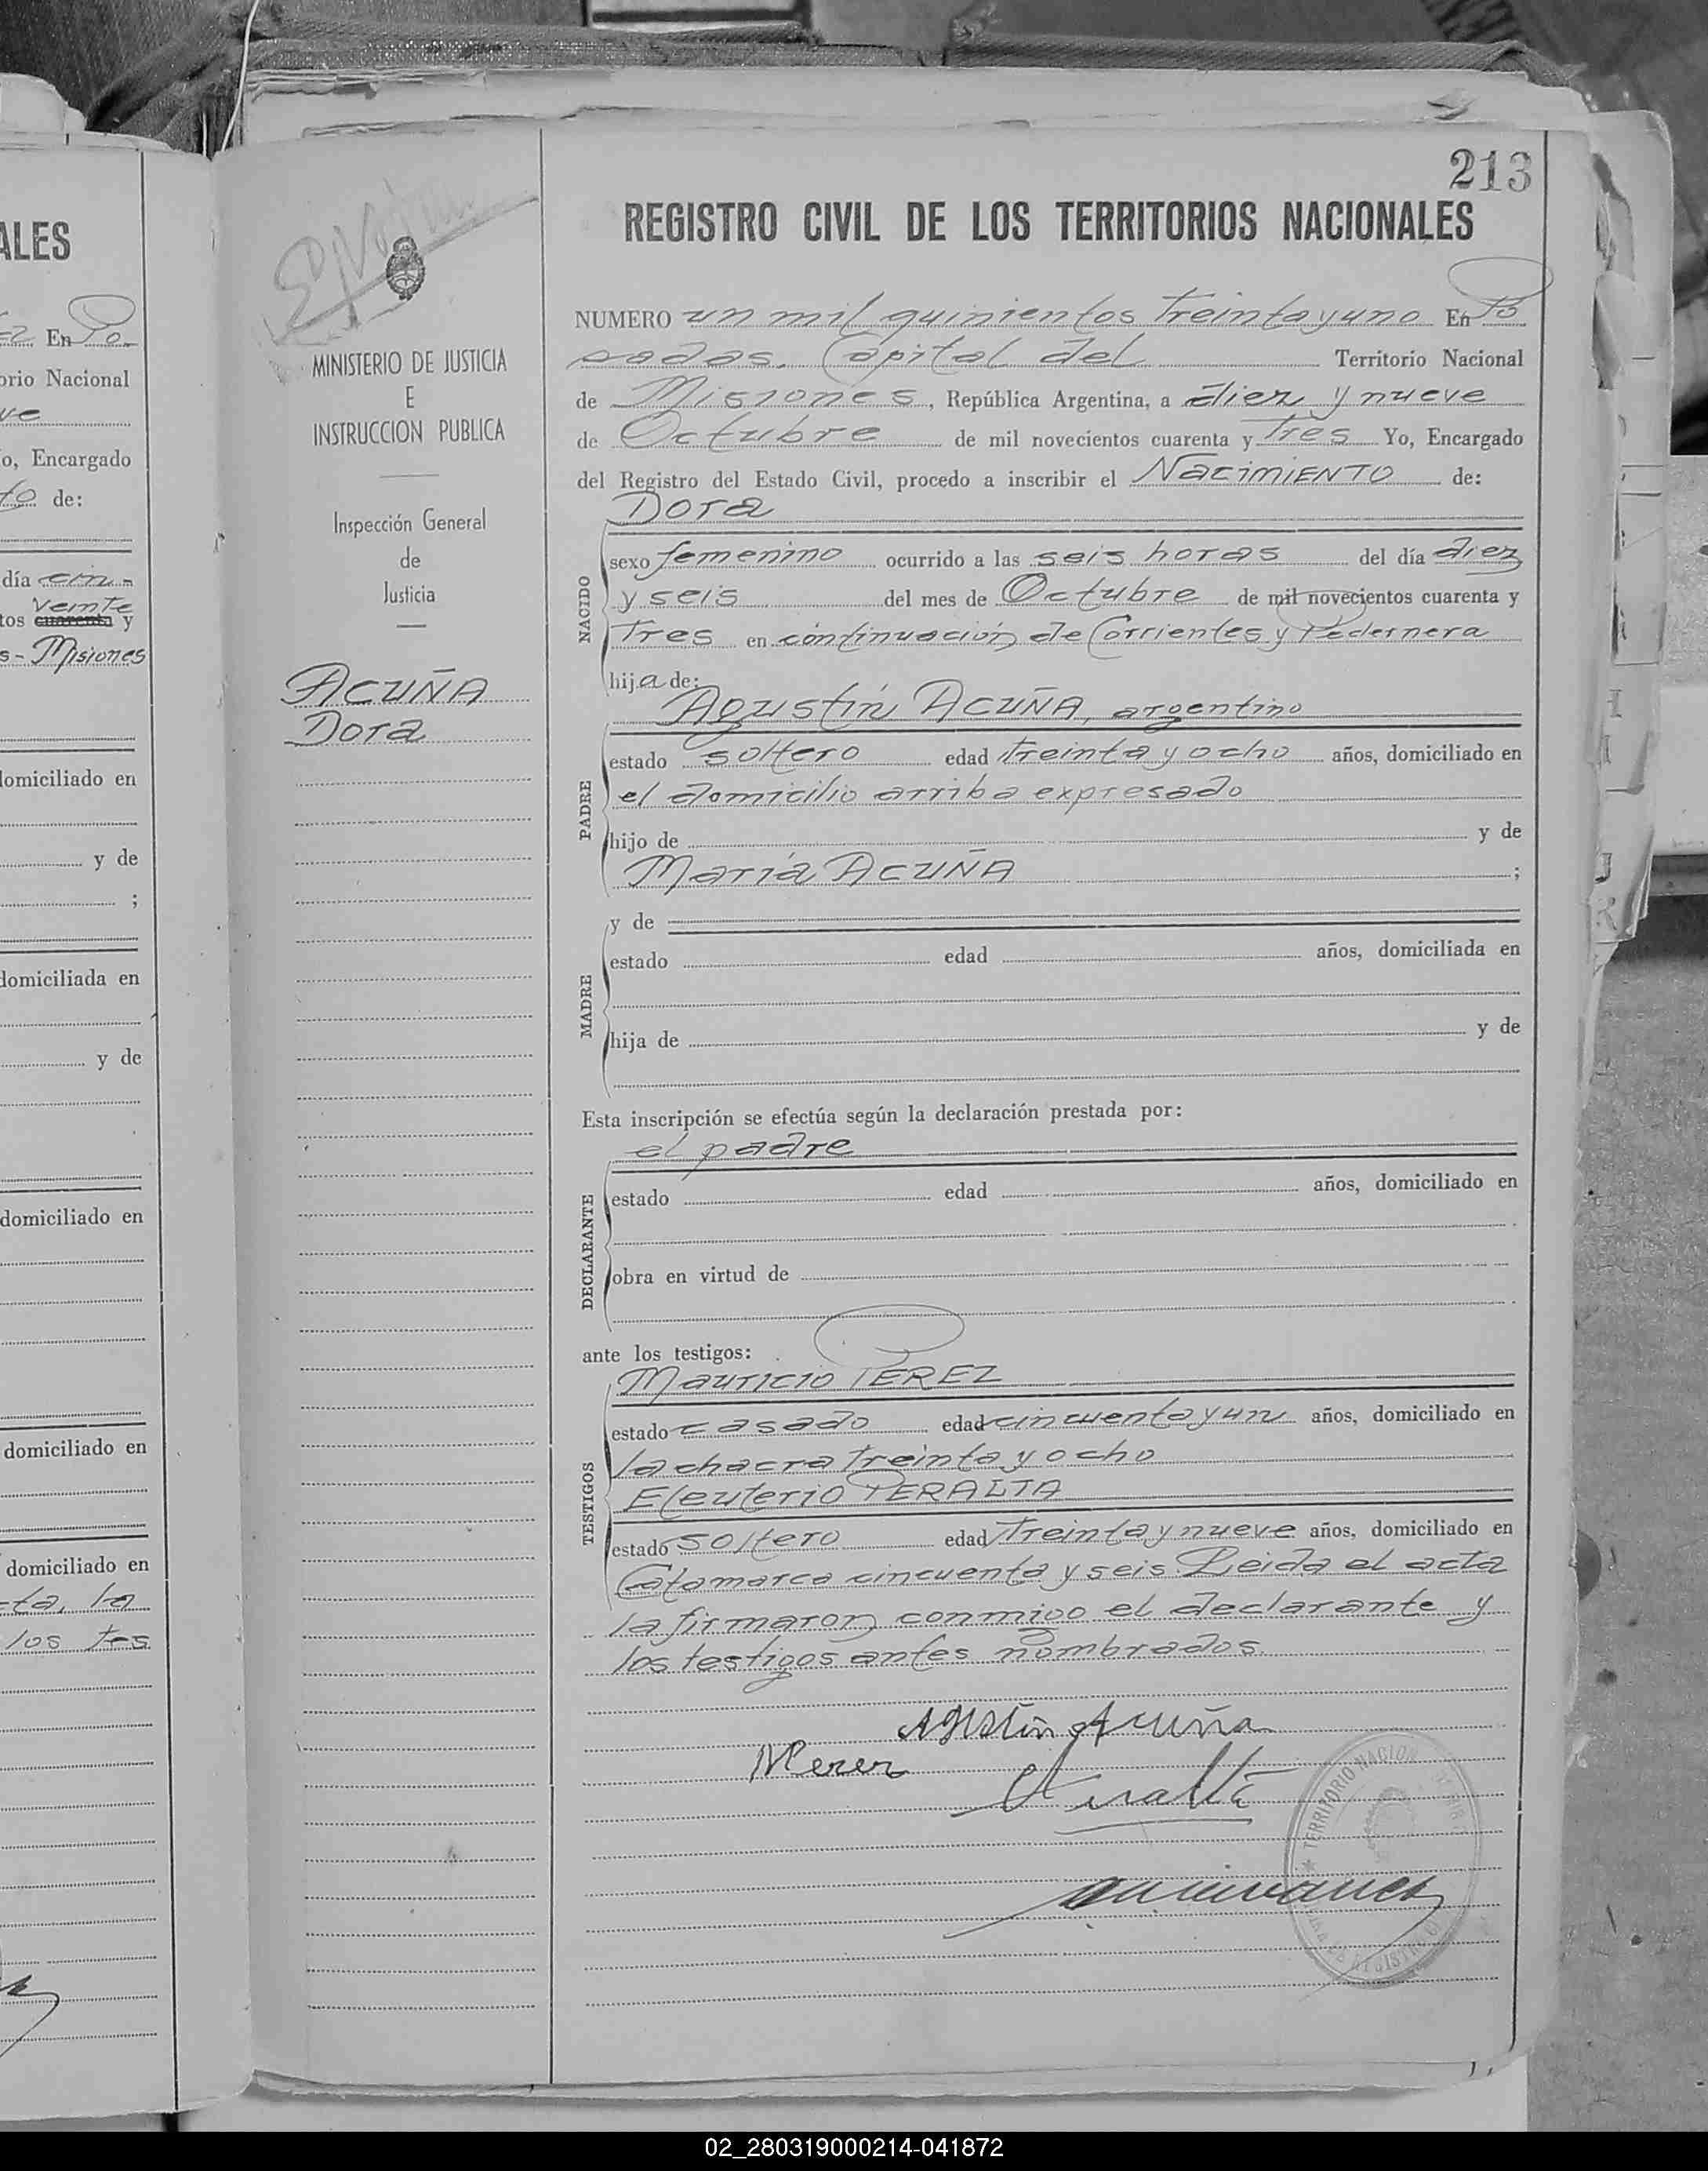 ALES
En Po
orio Nacional
ve
o, Encargado
to de:
día cin-
veinte
tos cuarenta y
s- Misiones
domiciliado en
y de
;
domiciliada en
y de
domiciliado en
domiciliado en
domiciliado en
cta, la
los tes
MINISTERIO DE JUSTICIA
E
INSTRUCCION PUBLICA
Inspección General
de
Justicia
ACUÑA
Dora
213
REGISTRO CIVIL DE LOS TERRITORIOS NACIONALES
NUMERO un mil quinientos treinta y uno En Po
sadas. Capital del Territorio Nacional
de Misiones, República Argentina, a diez y nueve
de Octubre de mil novecientos cuarenta y tres Yo, Encargado
del Registro del Estado Civil, procedo a inscribir el NACIMIENTO de:
Dora
NACIDO
sexo femenino ocurrido a las seis horas del día diez
y seis del mes de Octubre de mil novecientos cuarenta y
tres en continuación de Corrientes y Pedernera
hija de:
Agustín ACUÑA, argentino
PADRE
estado soltero edad treinta y ocho años, domiciliado en
el domicilio arriba expresado
hijo de y de
María ACUÑA ;
MADRE
y de
estado edad años, domiciliada en
hija de y de
Esta inscripción se efectúa según la declaración prestada por:
el padre
DECLARANTE
estado edad años, domiciliado en
obra en virtud de
ante los testigos:
Mauricio PEREZ
TESTIGOS
estado casado edad cincuenta y un años, domiciliado en
la chacra treinta y ocho
Eleuterio PERALTA
estado soltero edad treinta y nueve años, domiciliado en
Catamarca cincuenta y seis. Leida el acta
la firmaron conmigo el declarante y
los testigos antes nombrados.
Agustín Acuña
MPerez
EPeralta
TERRITORIO NACION
02_280319000214-041872